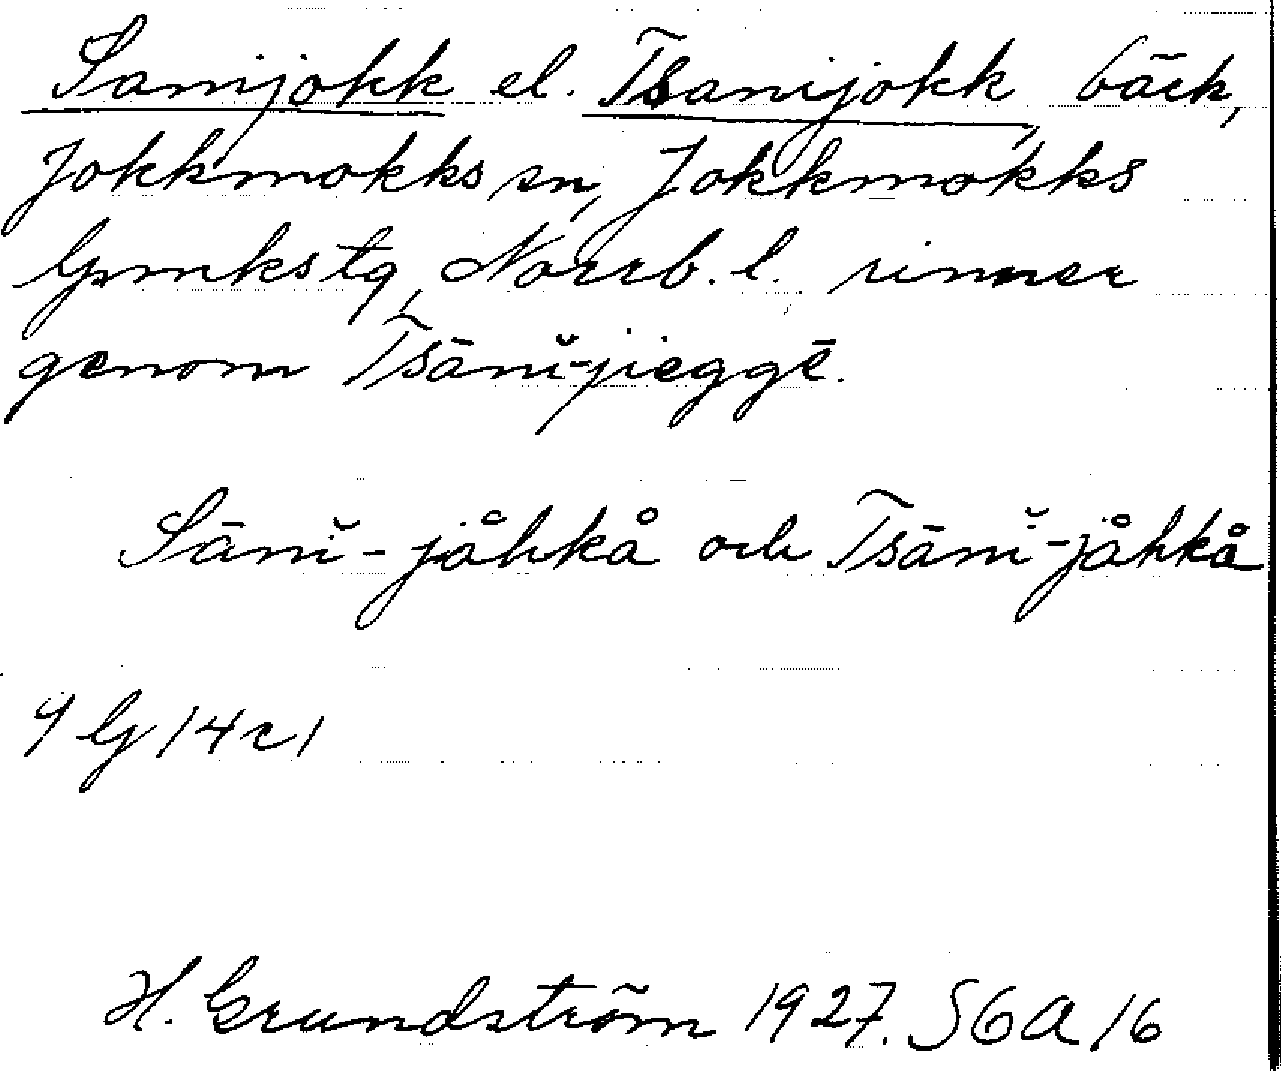 Sanijokk el. Tsanijokk, bäck,
Jokkmokks sn, Jokkmokks
lpmks tg, Norrb. l. rinner
genom Tsānĭ-jieggē.
Sānĭ-jåhkå och Tsānĭ-jåhkå
9 G 14c1
H. Grundström 1927. S6A16